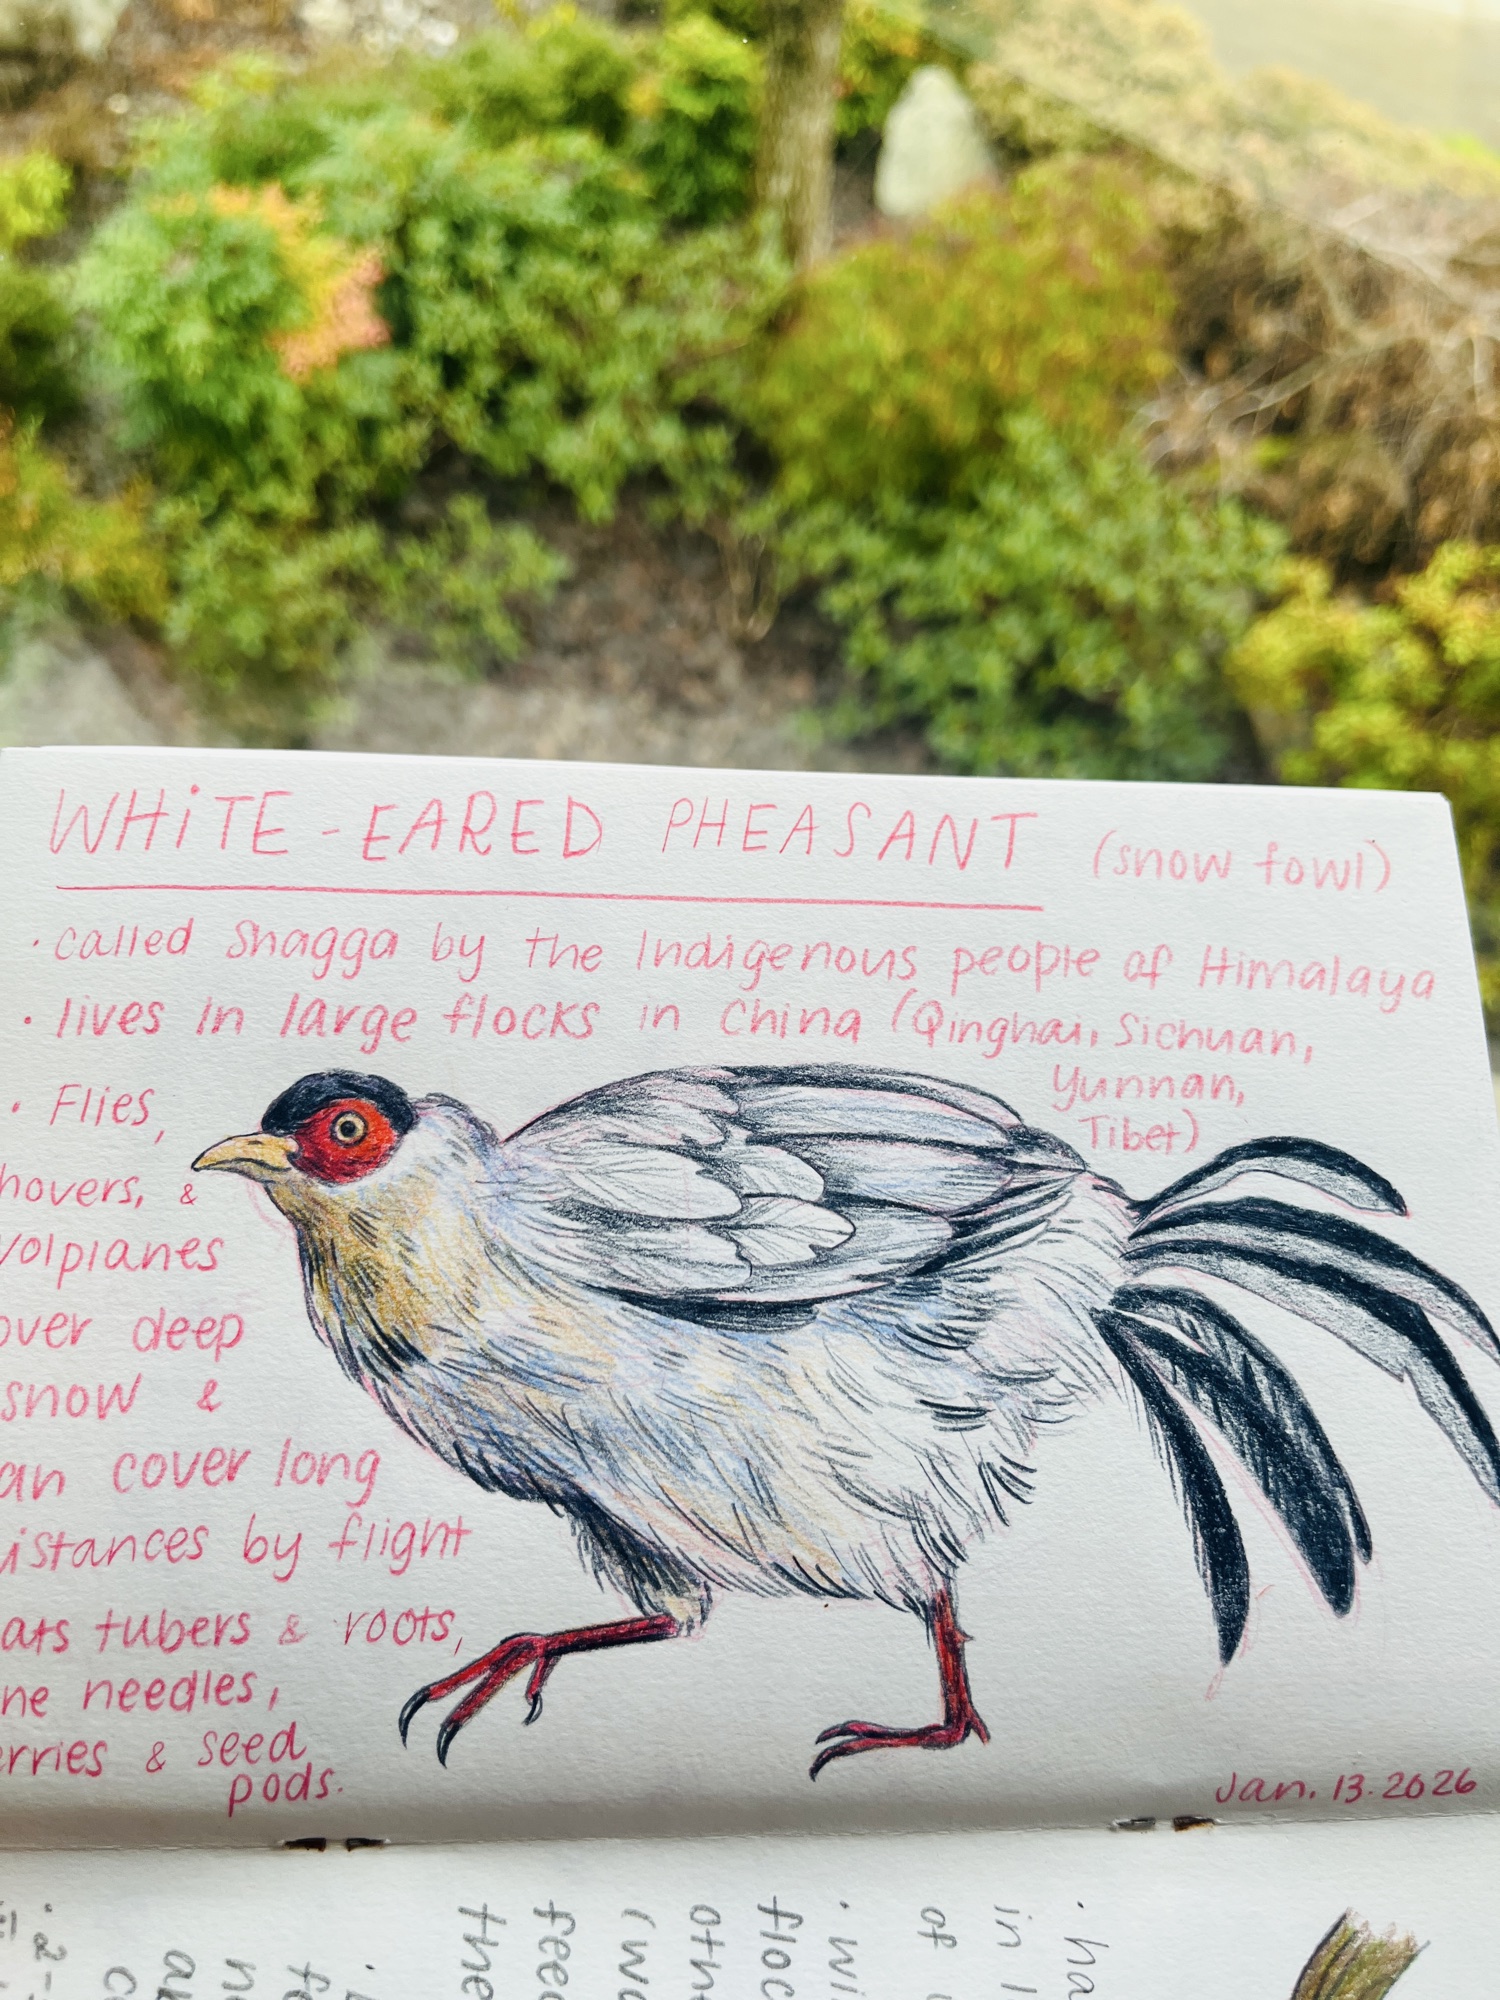 WHiTE-EARED PHEASANT (snow fowl)
· called Shagga by the Indigenous people of Himalaya
· lives in large flocks in China (Qinghai, Sichuan,
Yunnan,
Tibet)
· Flies,
hovers, &
volplanes
over deep
snow &
an cover long
istances by flight
ats tubers & roots,
ne needles,
erries & seed
pods.
Jan. 13. 2026
· ha
in l
of
· wi
floc
oth
(wo
feed
the